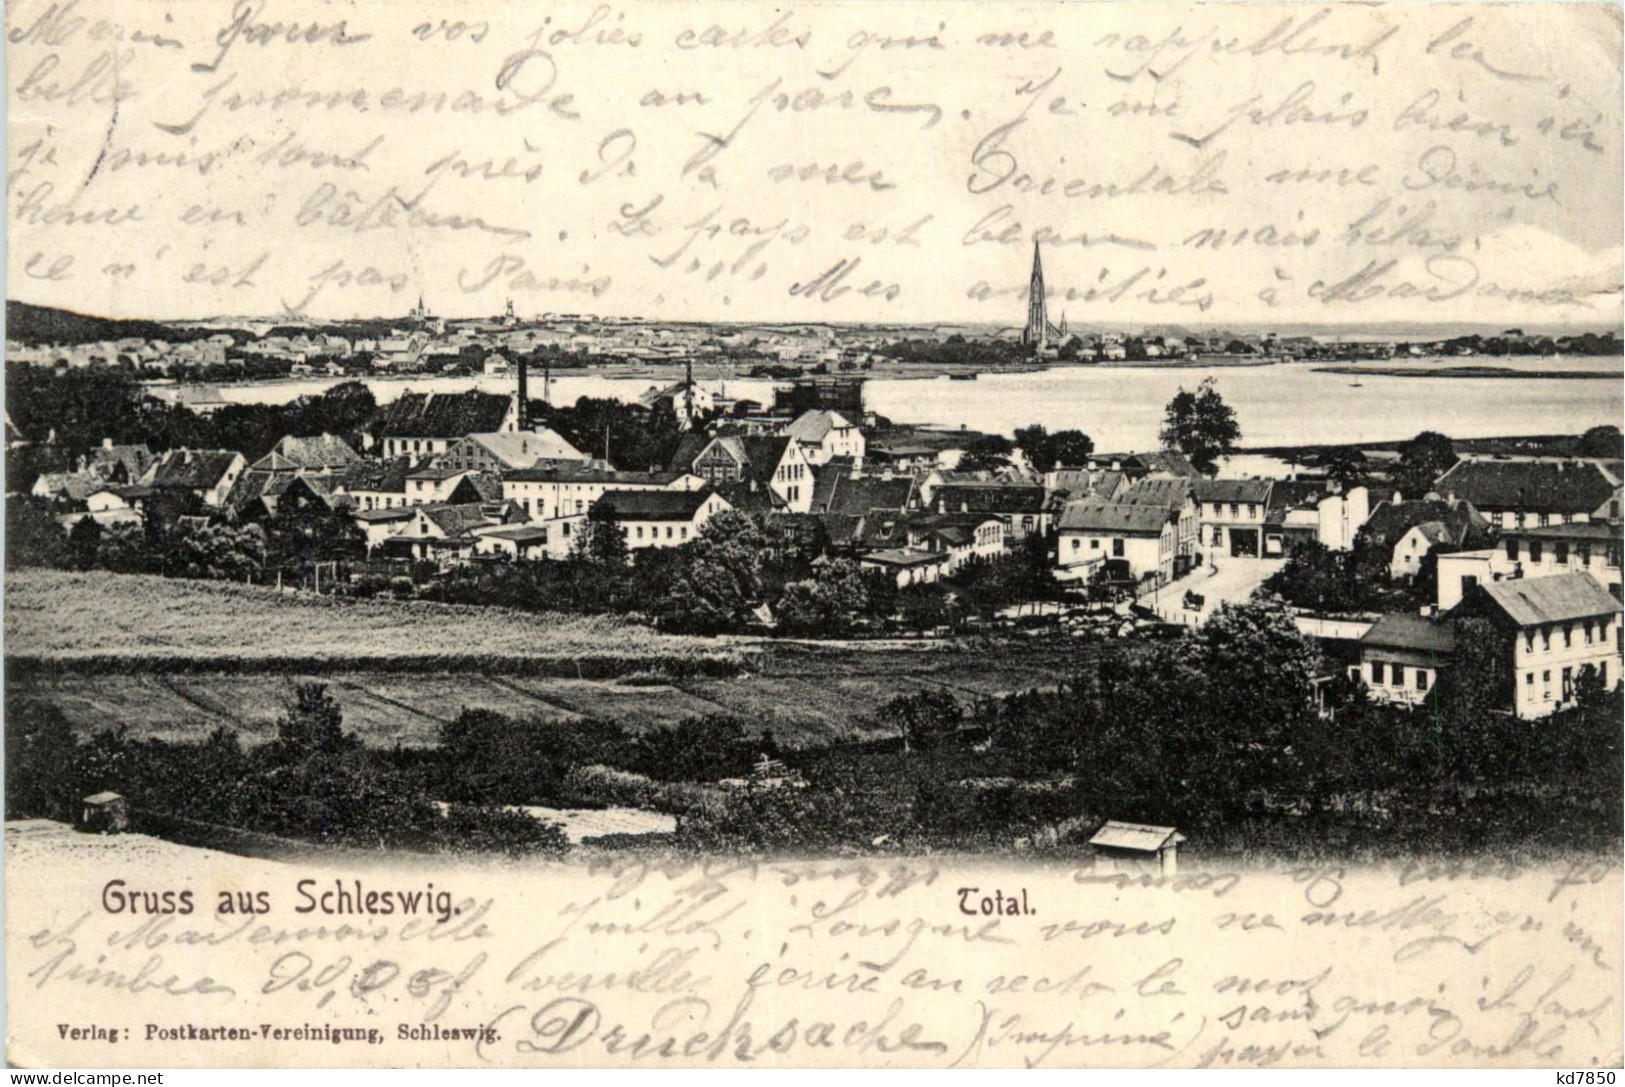 Merci pour vos jolies cartes qui me rappellent la
belle promenade au parc. Je me plais bien ici
je suis tout près de la mer Orientale une demie
heure en bâteau. Le pays est beau mais hélas
ce n'est pas Paris !!!! Mes amitiés à Madame
Gruss aus Schleswig.
Total.
et Mademoiselle Juillot. Lorsque vous ne mettez qu'un
timbre de 0,05f veuillez écrire au recto le mot
(Drucksache) (Imprimé) sans quoi il faut
payer le double.
Verlag: Postkarten-Vereinigung, Schleswig.
kd7850